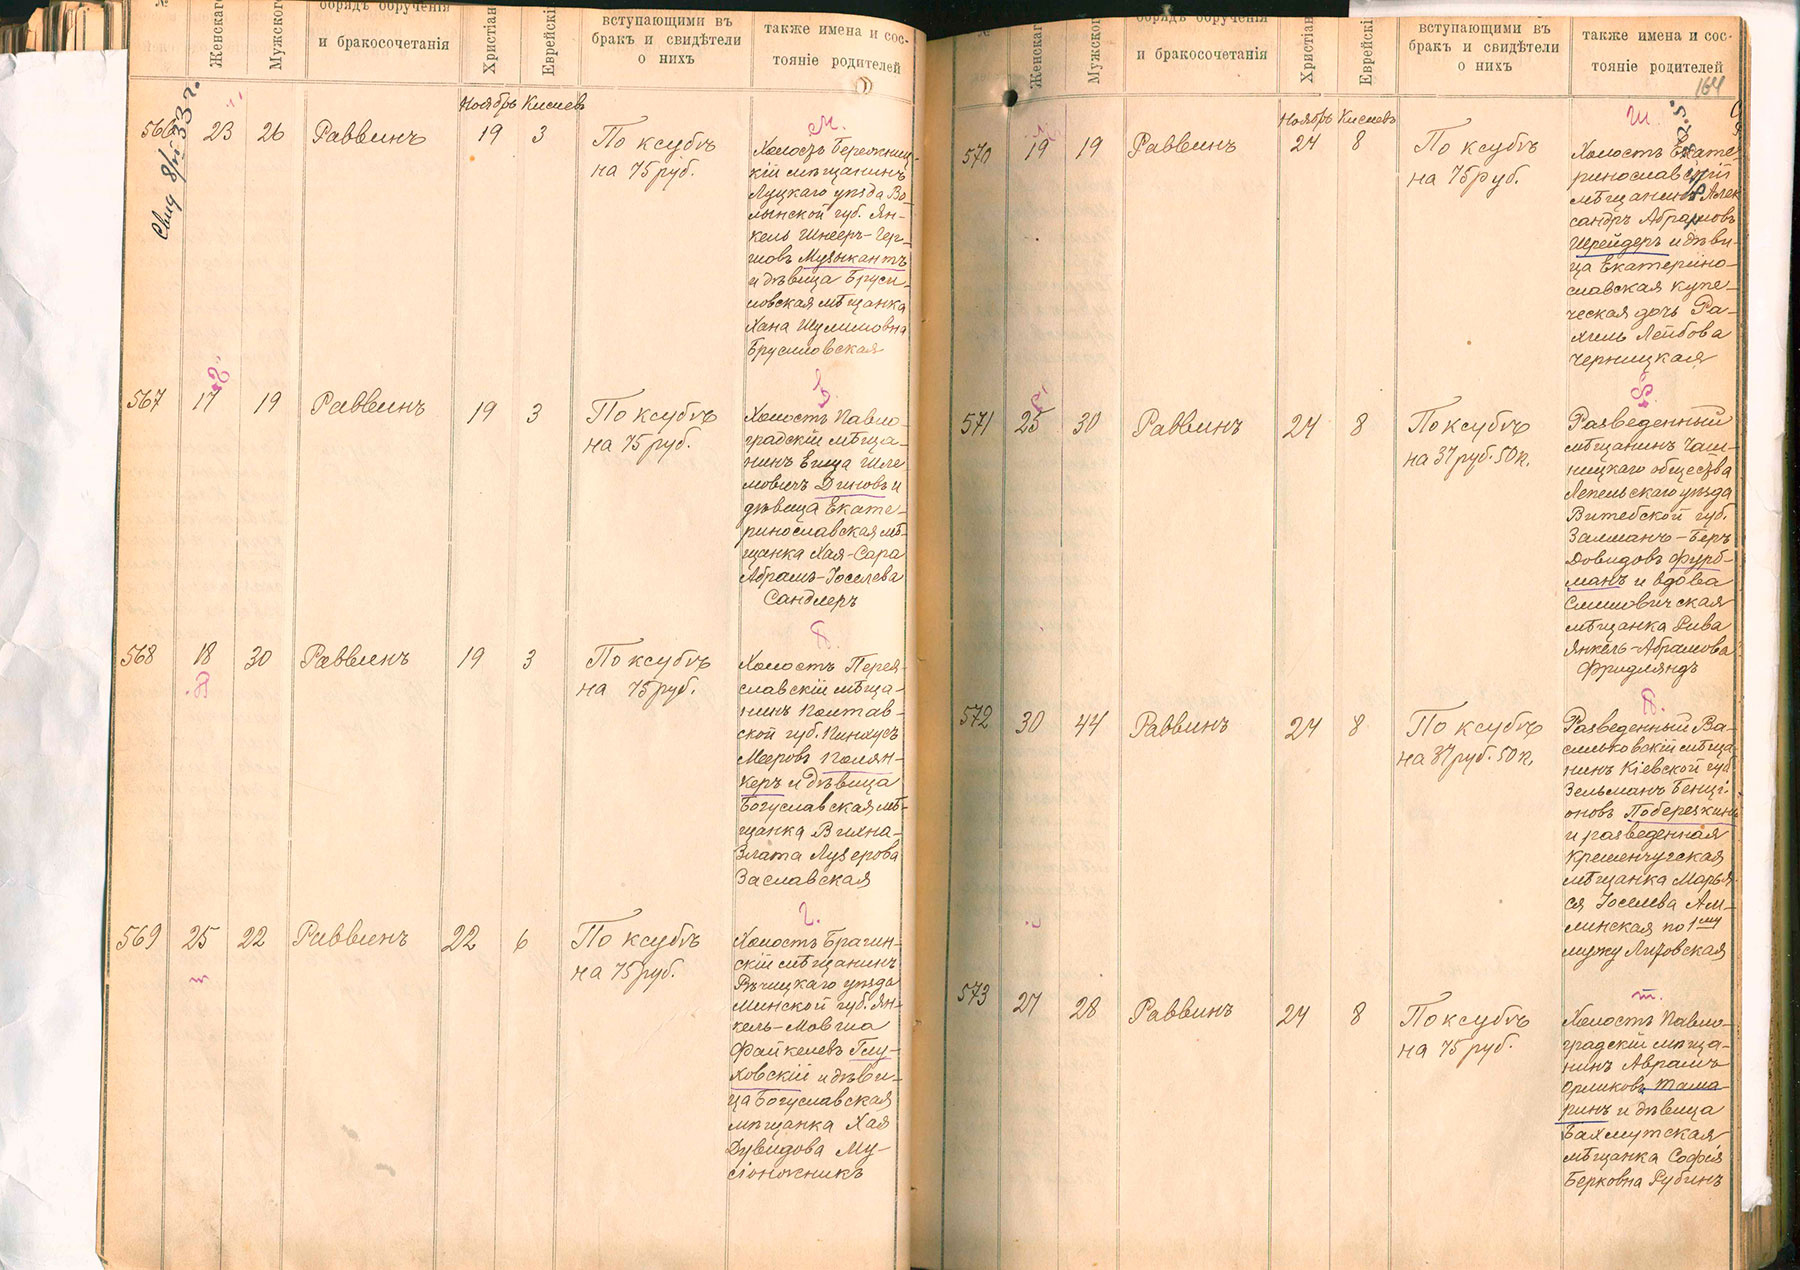 №
Женскаго
Мужского
обрядъ обрученія
и бракосочетанія
Христіан
Еврейскі
вступающими въ
бракъ и свидѣтели
о нихъ
также имена и сос-
тояніе родителей
Ноябрь Кислевъ
566 23 26 Раввинъ 19 3
По ксубѣ
на 75 руб.
М.
Холостъ Бережниц-
кій мѣщанинъ
Луцкаго уѣзда Во-
лынской губ. Ян-
кель Шнееръ-Гер-
шовъ Музыкантъ
и дѣвица Бруси-
ловская мѣщанка
Хана Шулимовна
Брусиловская
567 17 19 Раввинъ 19 3
По ксубѣ
на 75 руб.
Холостъ Павло-
градскій мѣща-
нинъ Шле-
мовичъ Диновъ и
дѣвица Екате-
ринославская мѣ-
щанка Хая-Сара
Абрамъ-Іоселева
Сандлеръ
568 18 30 Раввинъ 19 3
По ксубѣ
на 75 руб.
П.
Холостъ Перея-
славскій мѣща-
нинъ Полтав-
ской губ. Пинхусъ
Мееровъ Полян-
керъ и дѣвица
Богуславская мѣ-
щанка Вихна-
Злата Лузерова
Заславская
569 25 22 Раввинъ 22 6
По ксубѣ
на 75 руб.
Г.
Холостъ Брагин-
скій мѣщанинъ
Рѣчицкаго уѣзда
Минской губ. Ян-
кель-Мовша
Файкелевъ Глу-
ховскій и дѣви-
ца Богуславская
мѣщанка Хая
Дувидова Му-
сіоножникъ
Женскаг
Мужского
обрядъ обрученія
и бракосочетанія
Христіан
Еврейскі
вступающими въ
бракъ и свидѣтели
о нихъ
также имена и сос-
тояніе родителей
164
Ноябрь Кислевъ
570 19 19 Раввинъ 24 8
По ксубѣ
на 75 руб.
Ш.
Холостъ Екате-
ринославскій
мѣщанинъ Алек-
сандръ Абрамовъ
Шрейдеръ и дѣви-
ца Екатерино-
славская купе-
ческая дочь Ра-
хиль Лейбова
Черницкая
571 25 30 Раввинъ 24 8
По ксубѣ
на 37 руб. 50 к.
Разведенный
мѣщанинъ Чаш-
ницкаго общества
Лепельскаго уѣзда
Витебской губ.
Залманъ-Беръ
Довидовъ Фурб-
манъ и вдова
Смиловичская
мѣщанка Рива
Янкель-Абрамова
Фридляндъ
572 30 44 Раввинъ 24 8
По ксубѣ
на 37 руб. 50 к.
П.
Разведенный Ва-
сильковскій мѣща-
нинъ Кіевской губ.
Зельманъ Бенці-
оновъ Побережкинъ
и разведенная
Кременчугская
мѣщанка Марья-
ся Іоселева Ал-
линская по 1му
мужу
573 27 28 Раввинъ 24 8
По ксубѣ
на 75 руб.
Т.
Холостъ Павло-
градскій мѣща-
нинъ Аврамъ
Орликовъ Тама-
ринъ и дѣвица
Бахмутская
мѣщанка Софія
Берковна Рубинъ